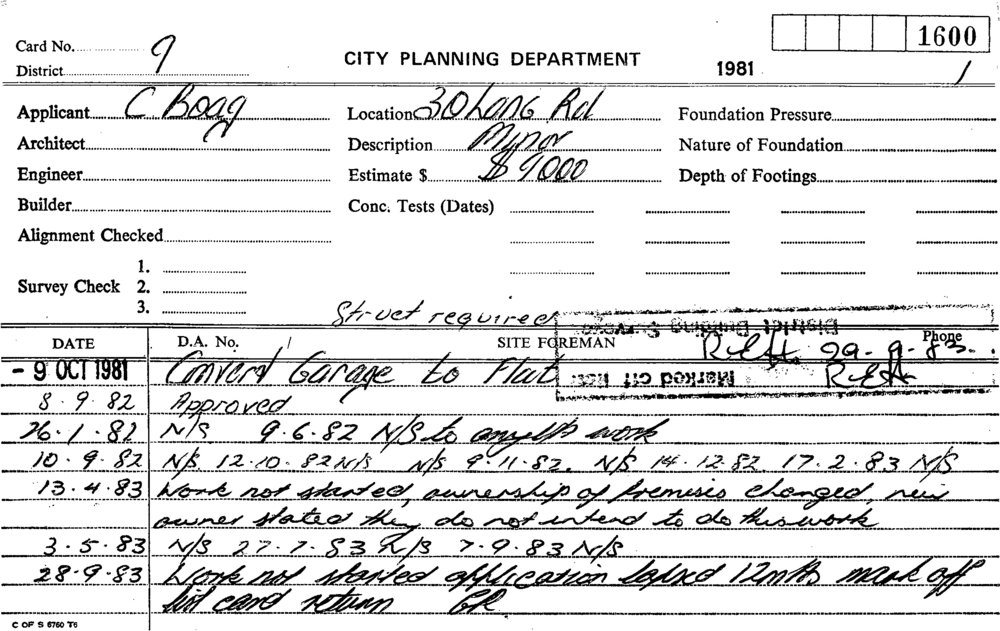 Card No. 9
1600
District
CITY PLANNING DEPARTMENT
1981 /
Applicant C Boag
Location 30 Lang Rd
Foundation Pressure
Architect
Description Minor
Nature of Foundation
Engineer
Estimate $ $ 9000
Depth of Footings
Builder
Conc. Tests (Dates)
Alignment Checked
Survey Check
1.
2.
3.
Struct required
District Building Surveyor
DATE
D.A. No. /
SITE FOREMAN
Phone
29-9-83
Marked off list
- 9 OCT 1981 Convert Garage to Flat
8.9.82 Approved
26.1.82 N/S 9.6.82 N/S to work
10.9.82 N/S 12.10.82 N/S N/S 9.11.82. N/S 14.12.82 17.2.83 N/S
13.4.83 Work not started, ownership of Premises changed, new
owner stated they do not intend to do this work
3.5.83 N/S 27.7.83 N/S 7.9.83 N/S
28.9.83 Work not started application lapsed 12mths mark off
list card return
C OF S 6760 T6